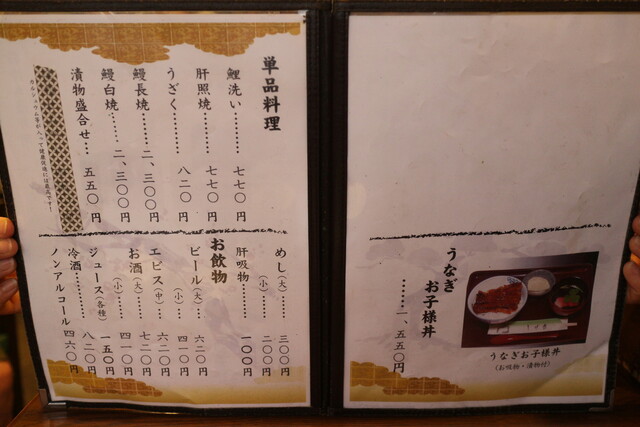 うなぎ
お子様丼
……一、五五〇円
うなぎお子様丼
(お吸物・漬物付)
単品料理
鯉洗い………七七〇円
肝照焼………七七〇円
うざく………八二〇円
鰻長焼……二、三〇〇円
鰻白焼……二、三〇〇円
漬物盛合せ…五五〇円
めし(大)……三〇〇円
(小)……二〇〇円
肝吸物……一〇〇円
お飲物
ビール(大)…六二〇円
(小)…四一〇円
エビス(中)…六二〇円
お酒(大)…七二〇円
(小)…四一〇円
ジュース(各種)一五〇円
冷酒………八二〇円
ノンアルコール 四六〇円